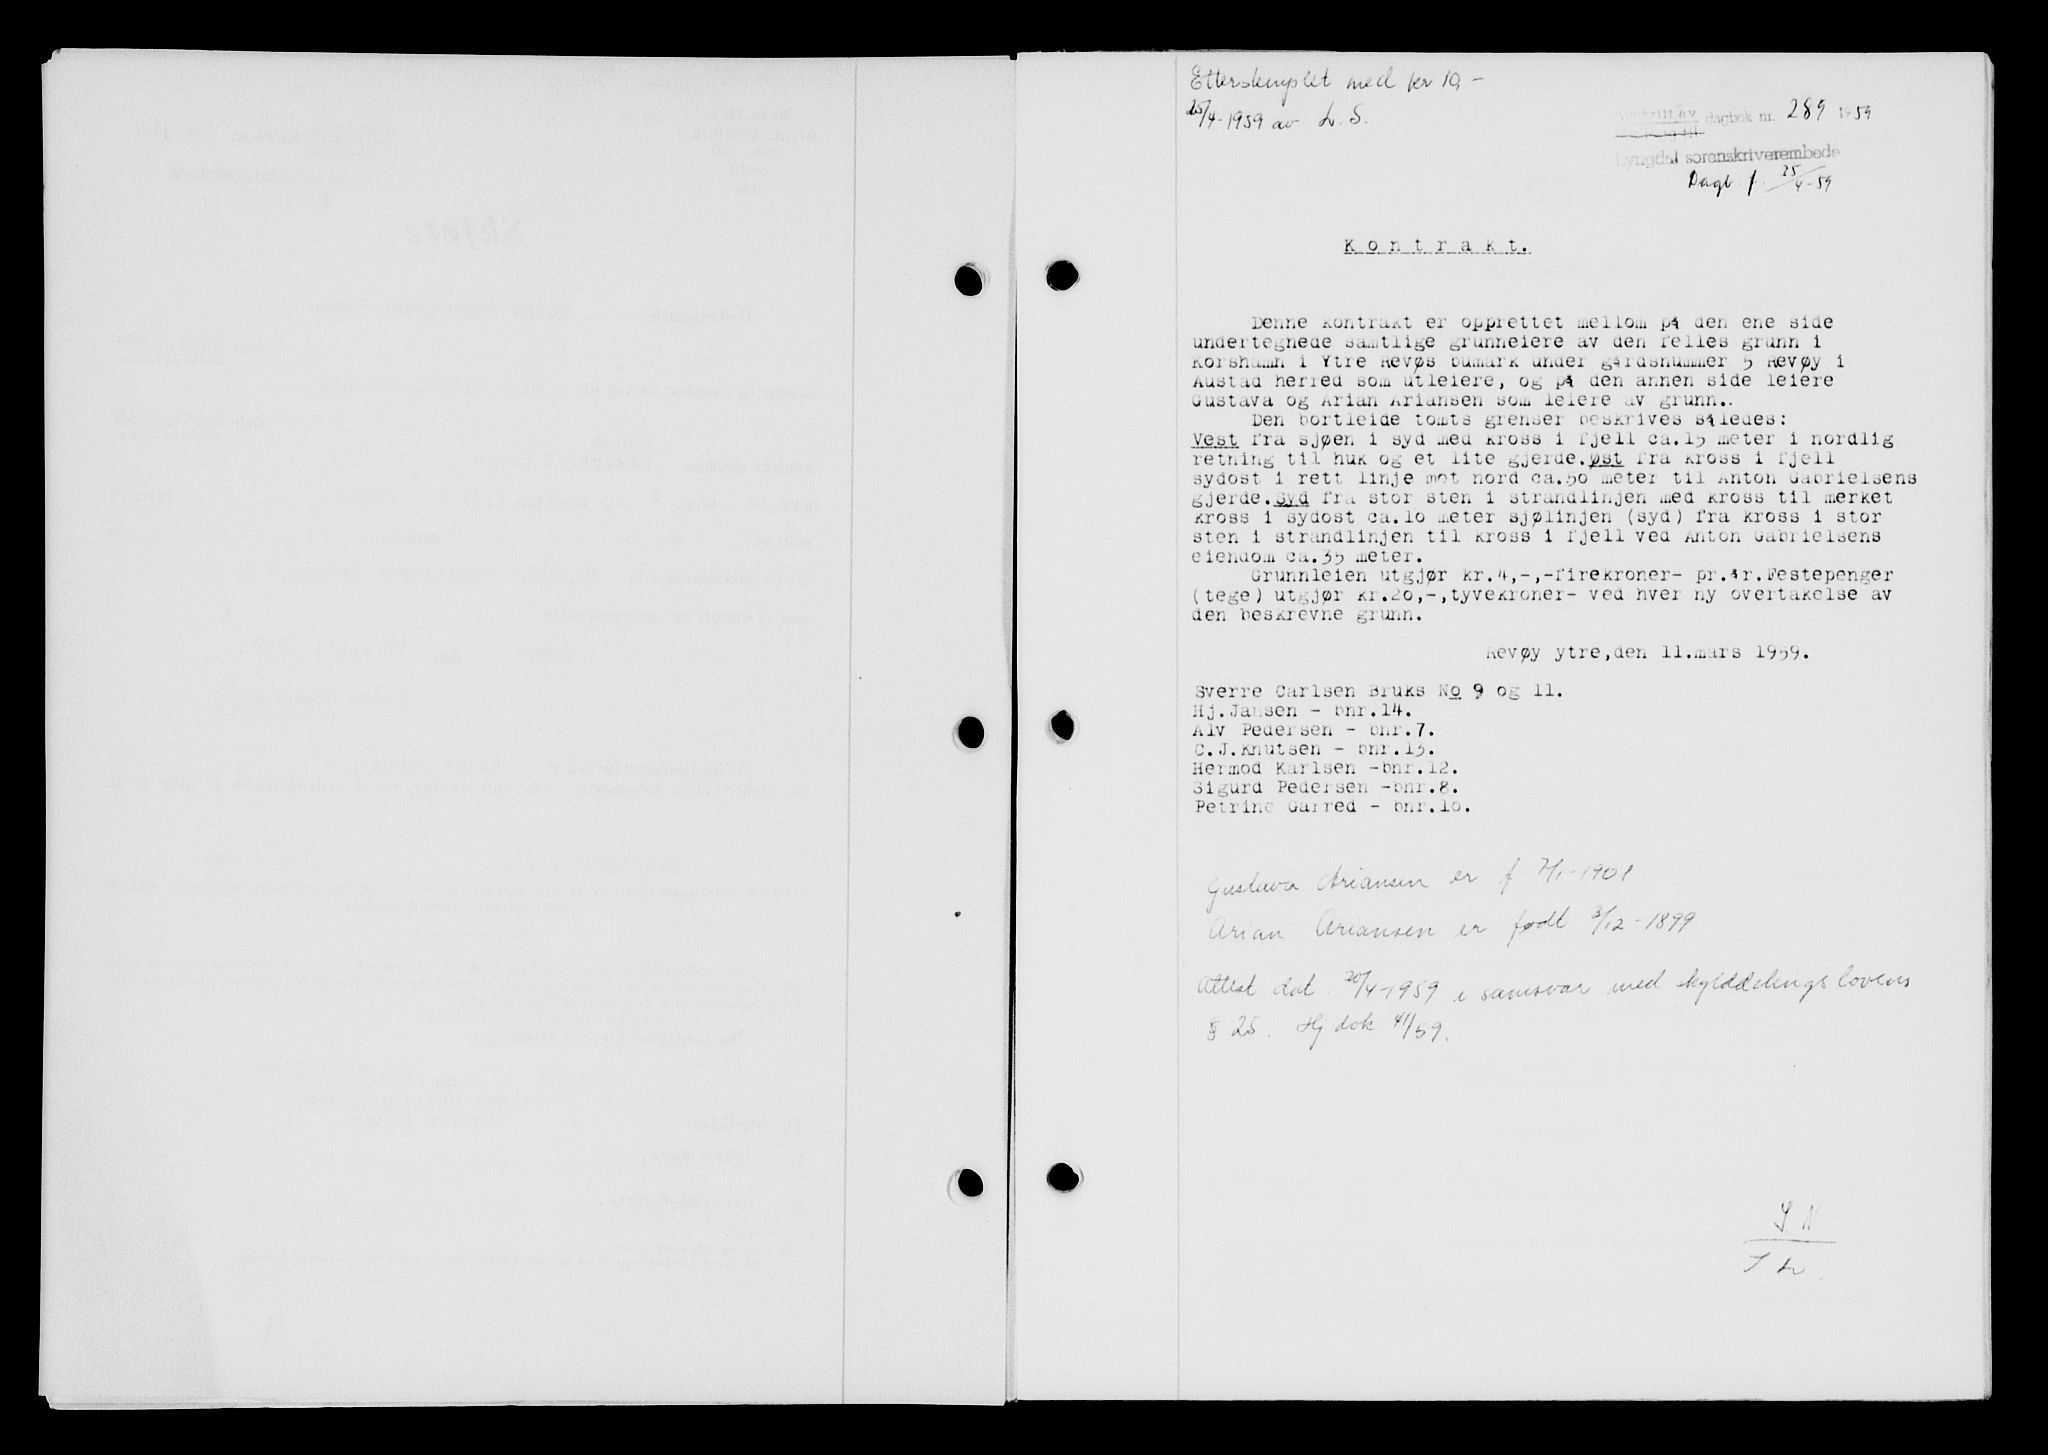 Etterstemplet med kr 10,-
25/4-1959 av L. S.
dagbok nr. 289 1959
Lyngdal sorenskriverembede
Dagb. f. 25/4-59
Kontrakt.
Denne kontrakt er opprettet mellom på den ene side
undertegnede samtlige grunneiere av den felles grunn i
Korshamn i Ytre Revøs bumark under gårdsnummer 5 Revøy i
Austad herred som utleiere, og på den annen side leiere
Gustava og Arian Ariansen som leiere av grunn..
Den bortleide tomts grenser beskrives således:
Vest fra sjøen i syd med kross i fjell ca.15 meter i nordlig
retning til huk og et lite gjerde.Øst fra kross i fjell
sydost i rett linje mot nord ca.50 meter til Anton Gabrielsens
gjerde.Syd fra stor sten i strandlinjen med kross til merket
kross i sydost ca.10 meter sjølinjen (syd) fra kross i stor
sten i strandlinjen til kross i fjell ved Anton Gabrielsens
eiendom ca.35 meter.
Grunnleien utgjør kr.4,-,-firekroner- pr.år.Festepenger
(tege) utgjør kr.20,-,tyvekroner- ved hver ny overtakelse av
den beskrevne grunn.
Revøy ytre,den 11.mars 1959.
Sverre Carlsen Bruks No 9 og 11.
Hj.Jansen - bnr.14.
Alv Pedersen - bnr.7.
C.J.Knutsen - bnr.13.
Hermod Karlsen -bnr.12.
Sigurd Pedersen -bnr.8.
Petrine Garred - bnr.10.
Gustava Ariansen er f 7/1-1901
Arian Ariansen er født 3/12-1899
Attest dat. 20/4-1959 i samsvar med skylddelingslovens
§ 25. Hj dok 41/59.
S. N